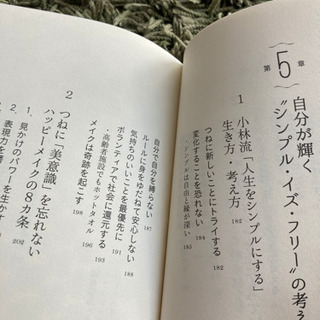 第5章
自分が輝く
“シンプル・イズ・フリー”の考え
1 小林流「人生をシンプルにする」
生き方・考え方 182
つねに新しいことにトライする 182
変化することを恐れない 184
・シンプルは自由と縁が深い 185
自分で自分を縛らない 187
ルールに身をゆだねて安心しない 188
気持ちのいいことを最優先に 191
ボランティアで社会に還元する 193
・高齢者施設でもホットタオル 196
メイクは奇跡を起こす 198
2 つねに「美意識」を忘れない
ハッピーメイクの8カ条
1. 見かけのパワーを生か 202
2. 表現力を磨